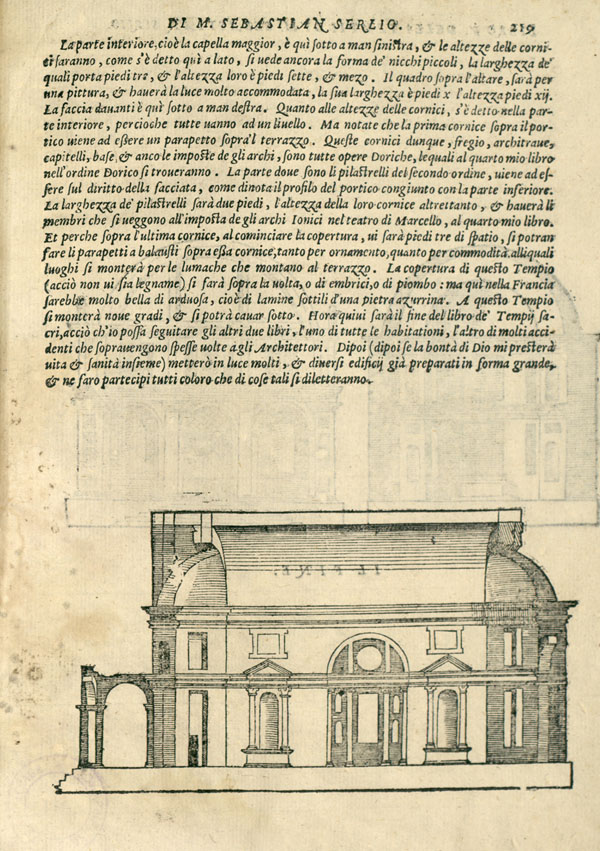 DI M. SEBASTIAN SERLIO. 219
La parte interiore, cioè la capella maggior, è quì sotto a man sinistra, & le altezze delle corni-
ci saranno, come s'è detto quì a lato, si vede ancora la forma de' nicchi piccoli, la larghezza de'
quali porta piedi tre, & l'altezza loro è piedi sette, & mezo. Il quadro sopra l'altare, sarà per
una pittura, & hauerà la luce molto accommodata, la sua larghezza è piedi x l'altezza piedi xij.
La faccia dauanti è quì sotto a man destra. Quanto alle altezze delle cornici, s'è detto nella pa-
te interiore, percioche tutte uanno ad un liuello. Ma notate che la prima cornice sopra il por-
tico uiene ad eßere un parapetto sopra'l terrazzo. Queste cornici dunque, fregio, architraue,
capitelli, base, & anco le imposte de gli archi, sono tutte opere Doriche, le quali al quarto mio libro
nell'ordine Dorico si troueranno. La parte doue sono li pilastrelli del secondo ordine, uiene ad es-
sere sul diritto della facciata, come dinota il profilo del portico congiunto con la parte inferiore.
La larghezza de' pilastrelli sarà due piedi, l'altezza della loro cornice altrettanto, & hauerà li
membri che si ueggono all'imposta de gli archi Ionici nel teatro di Marcello, al quarto mio libro.
Et perche sopra l'ultima cornice, al cominciare la copertura, ui sarà piedi tre di spatio, si potran
fare li parapetti a balausti sopra eßa cornice, tanto per ornamento, quanto per commodità. alli quali
luoghi si monterà per le lumache che montano al terrazzo. La copertura di questo Tempio
(acciò non ui sia legname) si farà sopra la uolta, o di embrici, o di piombo: ma quì nella Francia
sarebbe molto bella di arduosa, cioè di lamine sottili d'una pietra azurrina. A questo Tempio
si monterà noue gradi, & si potrà cauar sotto. Hora quiui sarà il fine del libro de' Tempij sa-
cri, acciò ch'io possa seguitare gli altri due libri, l'uno di tutte le habitationi, l'altro di molti acci-
denti che soprauengono speße uolte a gli Architettori. Dipoi (dipoi se la bontà di Dio mi presterà
uita & sanità insieme) metterò in luce molti, & diuersi edificij già preparati in forma grande,
& ne faro partecipi tutti coloro che di cose tali si diletteranno.
IL FINE.